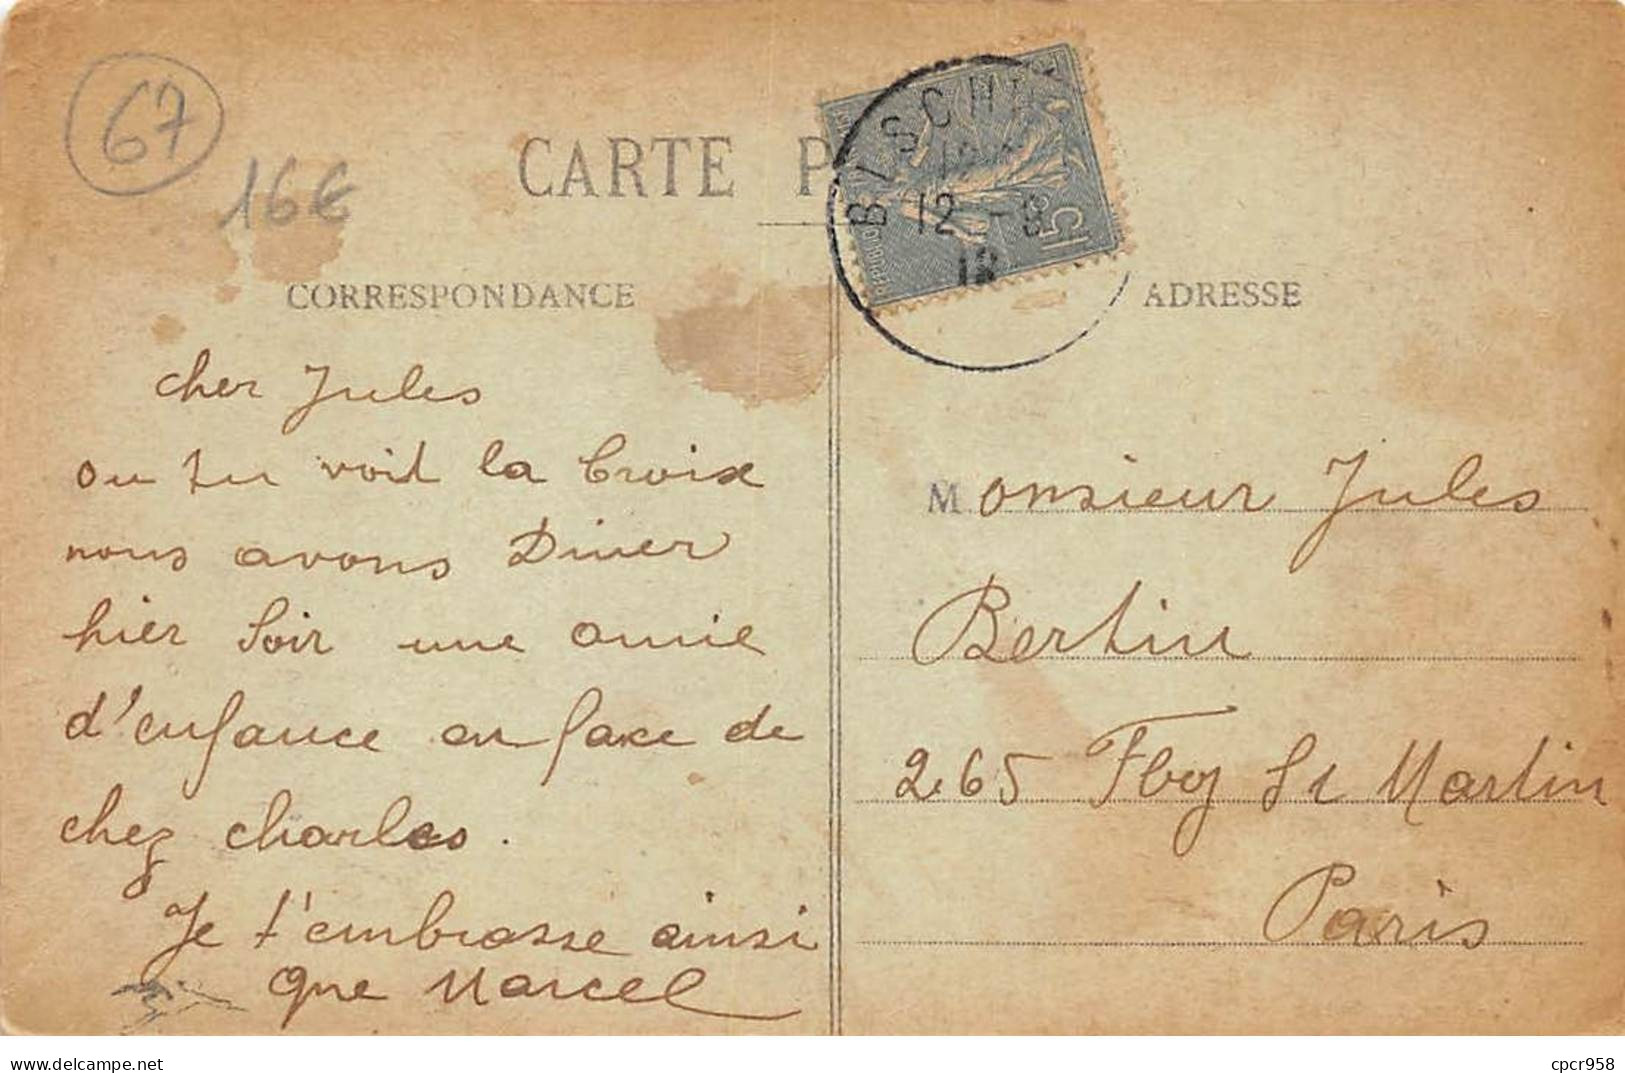 67
16€
CARTE P
BISCHW
12 -8
18
REPUBLIQUE
15
CORRESPONDANCE
ADRESSE
cher Jules
ou tu voit la Croix
nous avons Diner
hier Soir une amie
d'enfance en face de
chez charles.
Je t'embrasse ainsi
que Marcel
Monsieur Jules
Bertin
265 Fbg St Martin
Paris
https://www.delcampe.net
cpcr958